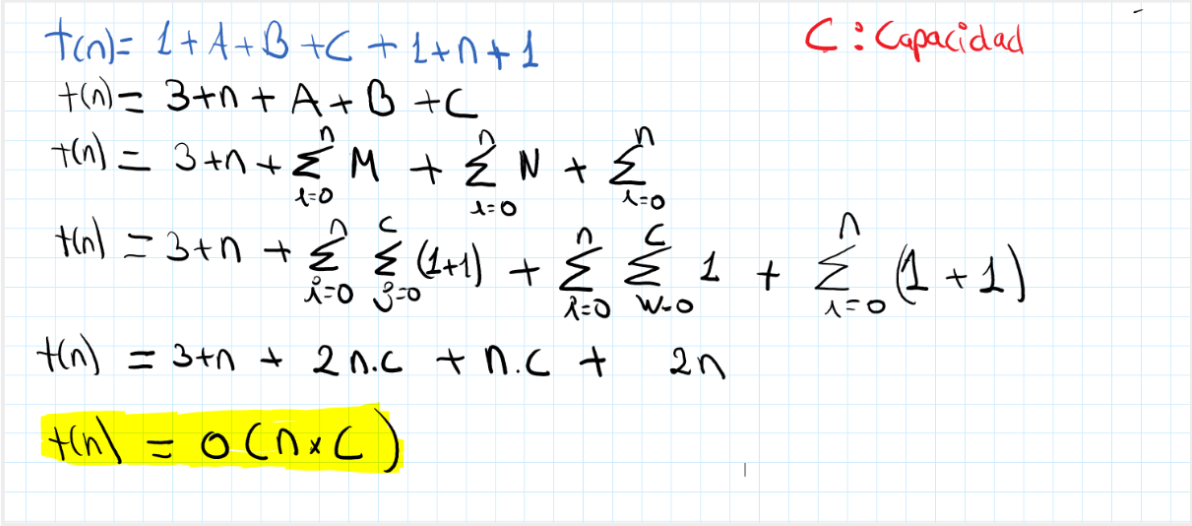 t(n)= 1+A+B+C+1+n+1
C: Capacidad
t(n)= 3+n+A+B+C
t(n) = 3+n+∑_{i=0}^{n} M + ∑_{i=0}^{n} N + ∑_{i=0}^{n}
t(n) = 3+n + ∑_{i=0}^{n} ∑_{j=0}^{C} (1+1) + ∑_{i=0}^{n} ∑_{w=0}^{C} 1 + ∑_{i=0}^{n} (1+1)
t(n) = 3+n + 2n.C + n.C + 2n
t(n) = O(n×C)